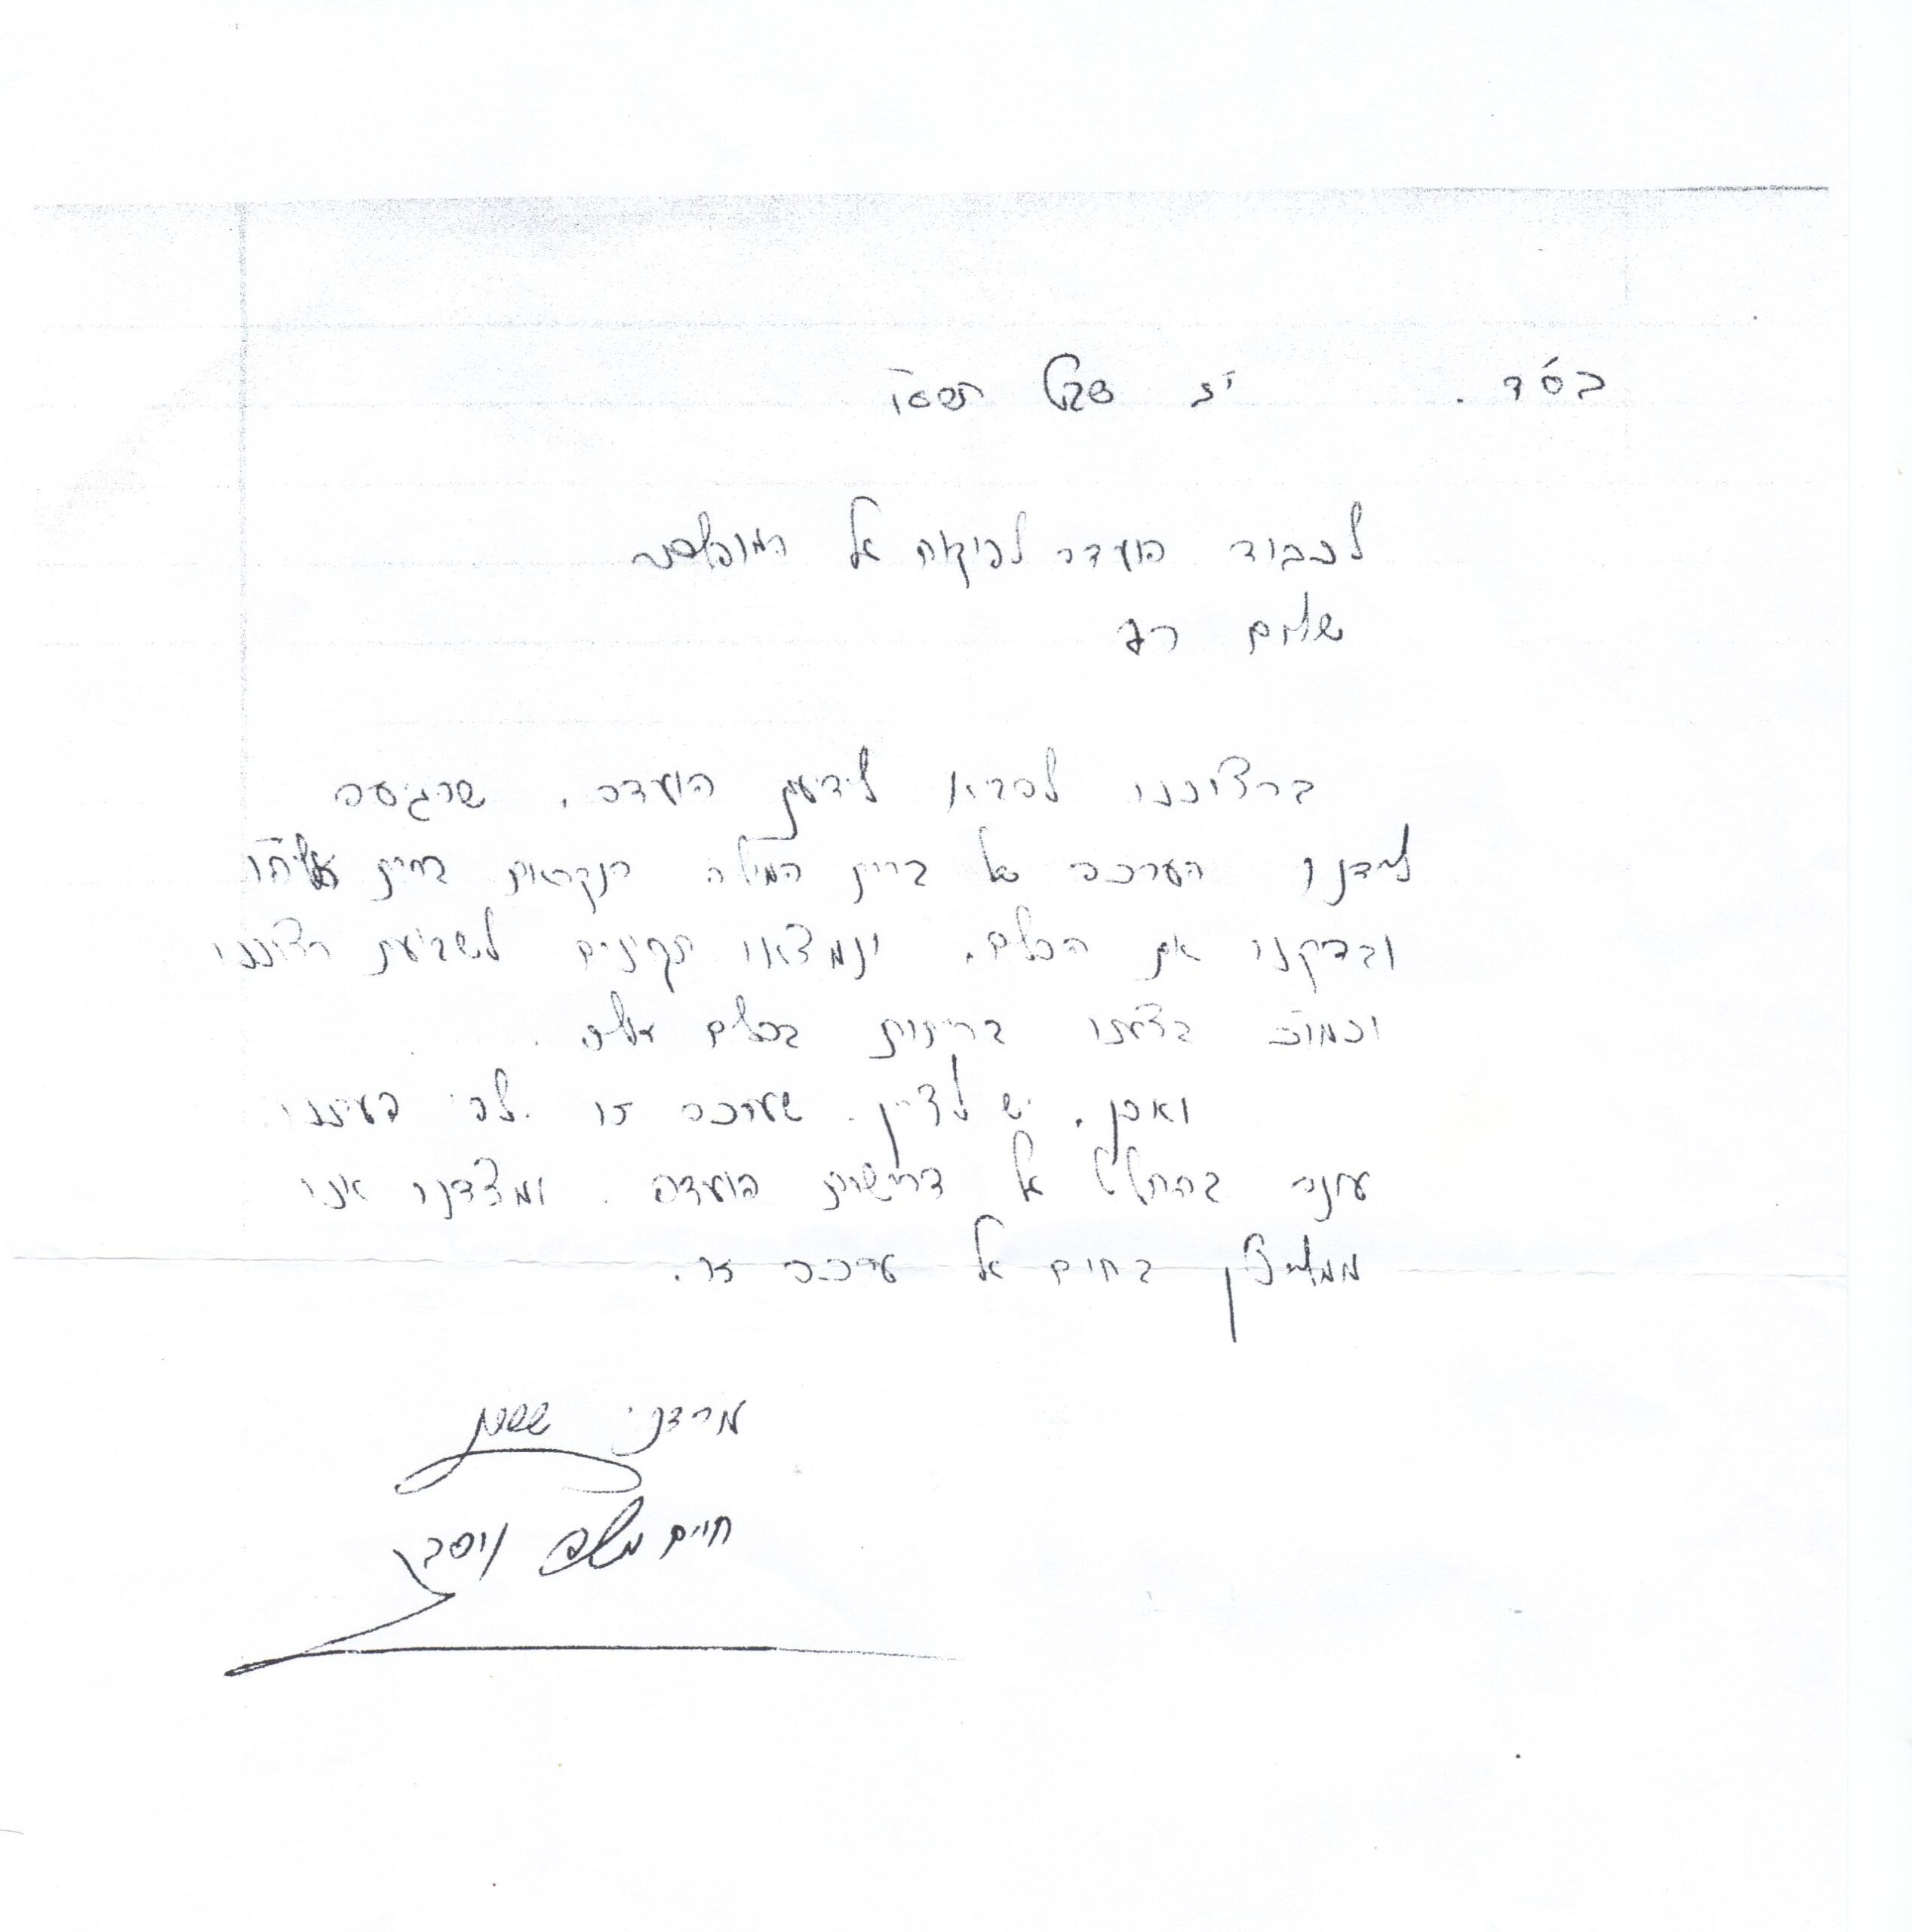 בס"ד. י"ג שבט תשס"ו
לכבוד הועדה לפיקוח על המוהלים
שלום רב
ברצוננו להביא לידיעת הועדה, שהגיעה
לידנו הערכה של ברית המילה הנקראת ברית
ובדקנו את הכלים, ונמצאו תקינים לשביעת רצוננו
וכמו"כ בצענו בריתות בכלים אלו.
ואכן, יש לציין שערכה זו לפי דעתנו
עונה בהחלט על דרישות הועדה. ומצדנו אנו
ממליצין בחום על ערכה זו.
מרדכי ששון
חיים משה